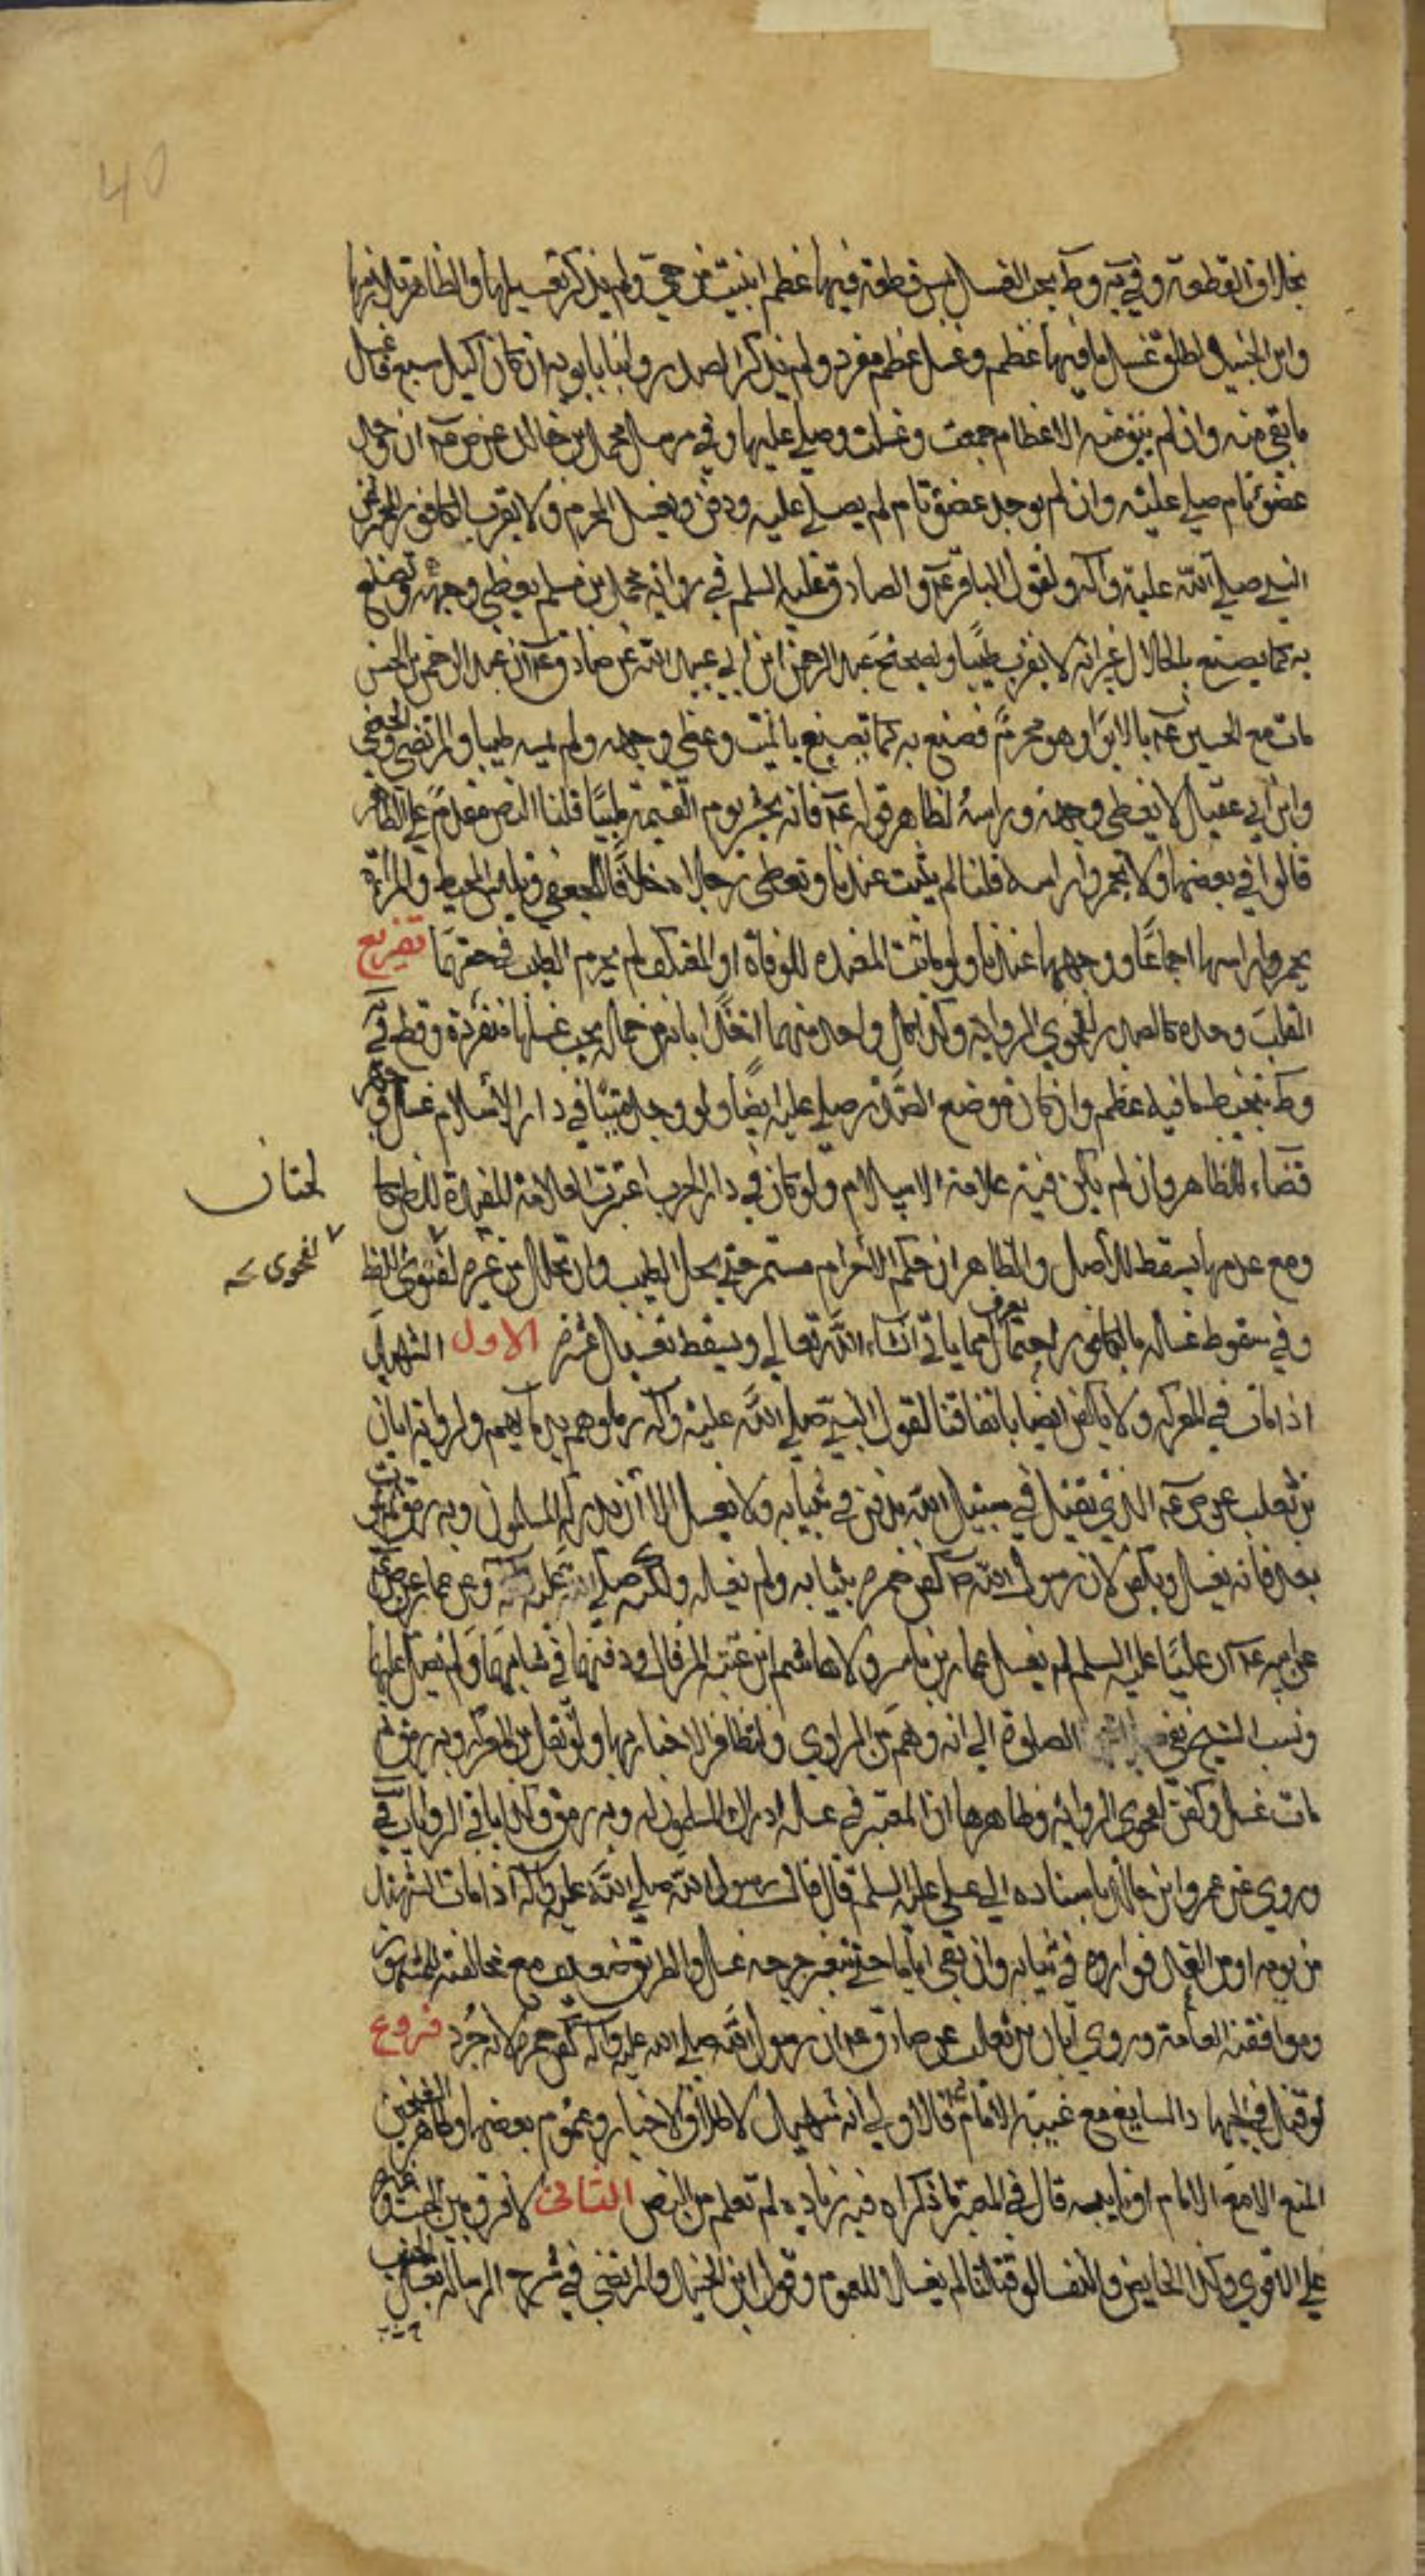 40
وابن الجنيد اطلق غسل ما فيها عظم وغسل عظم مفرد ولم يذكر الصدر وابنا بابويه ان كان اكيل سبع غسل
ما بقي منه وان لم يبق منه الا عظام جمعت وغسلت وصلي عليها وفي مرسل محمد بن خالد عن ص عه ان وجد
عضو تام صلي عليه وان لم يوجد عضو تام لم يصل عليه ودفن ويغسل المحرم ولا يقرب الكافور
النبي صلي الله عليه وآله ولقول الباقر عه والصادق عليه السلم في رواية محمد بن مسلم يغطي وجهه ويصنع
به كما يصنع بالحلال غير انه لا يقرب طيبا ولصحيح عبد الرحمن ابن ابي عبد الله عن صادق عه ان عبد الرحمن بن الحسن
مات مع الحسين عه بالابواء وهو محرم فصنع به كما يصنع بالميت وغطي وجهه ولم يمسه طيبا والمرتضي
وابن ابي عقيل لا يغطي وجهه وراسه لظاهر قوله عه فانه يحشر يوم القيمة ملبيا قلنا النص مقدم علي الظاهر
قالوا في بعضها ولا تخمروا راسه قلنا لم يثبت عندنا وتغطي رجلاه خلافا للجعفي ويلبس المخيط والمراة
يخمر راسها اجماعا ووجهها عندنا ولو ماتت المعتده للوفاة او المعتكف لم يحرم الطيب في حقهما تفريع
القلب وحده كالصدر لفحوي الرواية وكذا كل واحد منهما
وان كان موضع الصدر صلي عليه ايضا ولو وجد ميتا في دار الاسلام غسل
قضاء للظاهر وان لم يكن فيه علامة الاسلام ولو كان في دار الحرب اعتبرت العلامة المفيدة للظن كا
لختان
ومع عدمها يسقط للأصل والظاهر ان حكم الاحرام مستمر حتي يحل الطيب وان تحلل من غيره
لفحوي
وفي سقوط غسله بالكافور احتمال يعرف مما ياتي انشاء الله تعالي ويسقط تغسيل عشر الاول الشهيد
اذا مات في المعركه ولا يكفن ايضا باتفاقنا لقول النبي صلي الله عليه وآله زملوهم بدمائهم ولرواية ابان
بن تغلب عن ص عه الذي يقتل في سبيل الله يدفن في ثيابه ولا يغسل الا ان يدركه المسلمون وبه رمق ثم يموت
بعد فانه يغسل ويكفن لان رسول الله ص كفن حمزه بثيابه ولم يغسله ولكنه صلي عليه وعن عمار عن ص
عن ابيه عه ان عليا عليه السلم لم يغسل عمار بن ياسر ولا هاشم ابن عتبه المرقال ودفنهما في ثيابهما ولم يصل عليهما
ونسب الشيخ نفي الصلوة الي انه وهم من الراوي ولتظافر الاخبار بها ولو نقل من المعركه وبه رمق ثم
مات غسل وكفن لفحوي الرواية وظاهرها ان المعتبر في غسله ادراك المسلمون له وبه رمق وكذا باقي الروايات
وروي عن عمرو ابن خالد باسناده الي علي عليه السلم قال قال رسول الله صلي الله عليه وآله اذا مات الشهيد
من يومه او من الغد فواروه في ثيابه وان بقي اياما حتي تتغير جرحه غسل والطريق ضعيف مع مخالفته المشهور
وموافقته العامة وروي ابان بن تغلب عن صادق عه ان رسول الله صلي الله عليه وآله كفن حمزه لانه جرد فروع
لو قتل في الجهاد السايغ مع غيبة الامام قالاولي انه شهيد لاطلاق الاخبار وعموم بعضها وظاهر الشيخين
المنع الا مع الامام او نايبه قال في المعتبر ما ذكراه فيه زياده لم تعلم من النص الثاني لا فرق بين الجنب وغيره
علي الاقوي وكذا الحايض والنفسا لو قتلتا لم يغسلا للعموم وقول ابن الجنيد والمرتضي في شرح الرساله يغسل الجنب